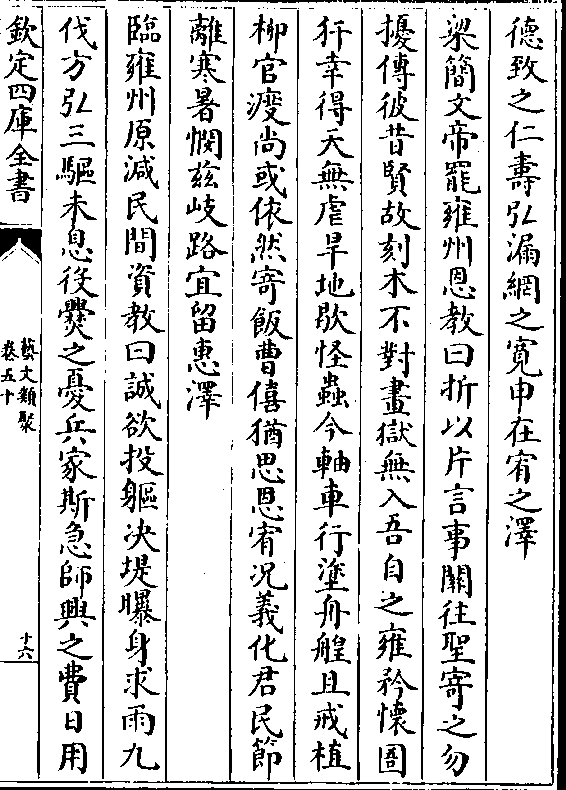 德致之仁壽弘漏網之寛申在宥之澤
梁簡文帝罷雍州恩教曰折以片言事闗往聖寄之勿
擾傳彼昔賢故刻木不對畫獄無入吾自之雍矜懐圄
犴幸得天無虐旱地歇怪蟲今軸車行塗舟艎且戒植
栁官渡尚或依然寄飯曹僖猶思恩宥况義化君民節
離寒暑憫兹岐路宜留惠澤
臨雍州原減民間資教曰誠欲投軀决堤曝身求雨九
伐方弘三驅未息役㸑之憂兵家斯急師興之費日用
欽定四庫全書
藝文類聚
卷五十
十六